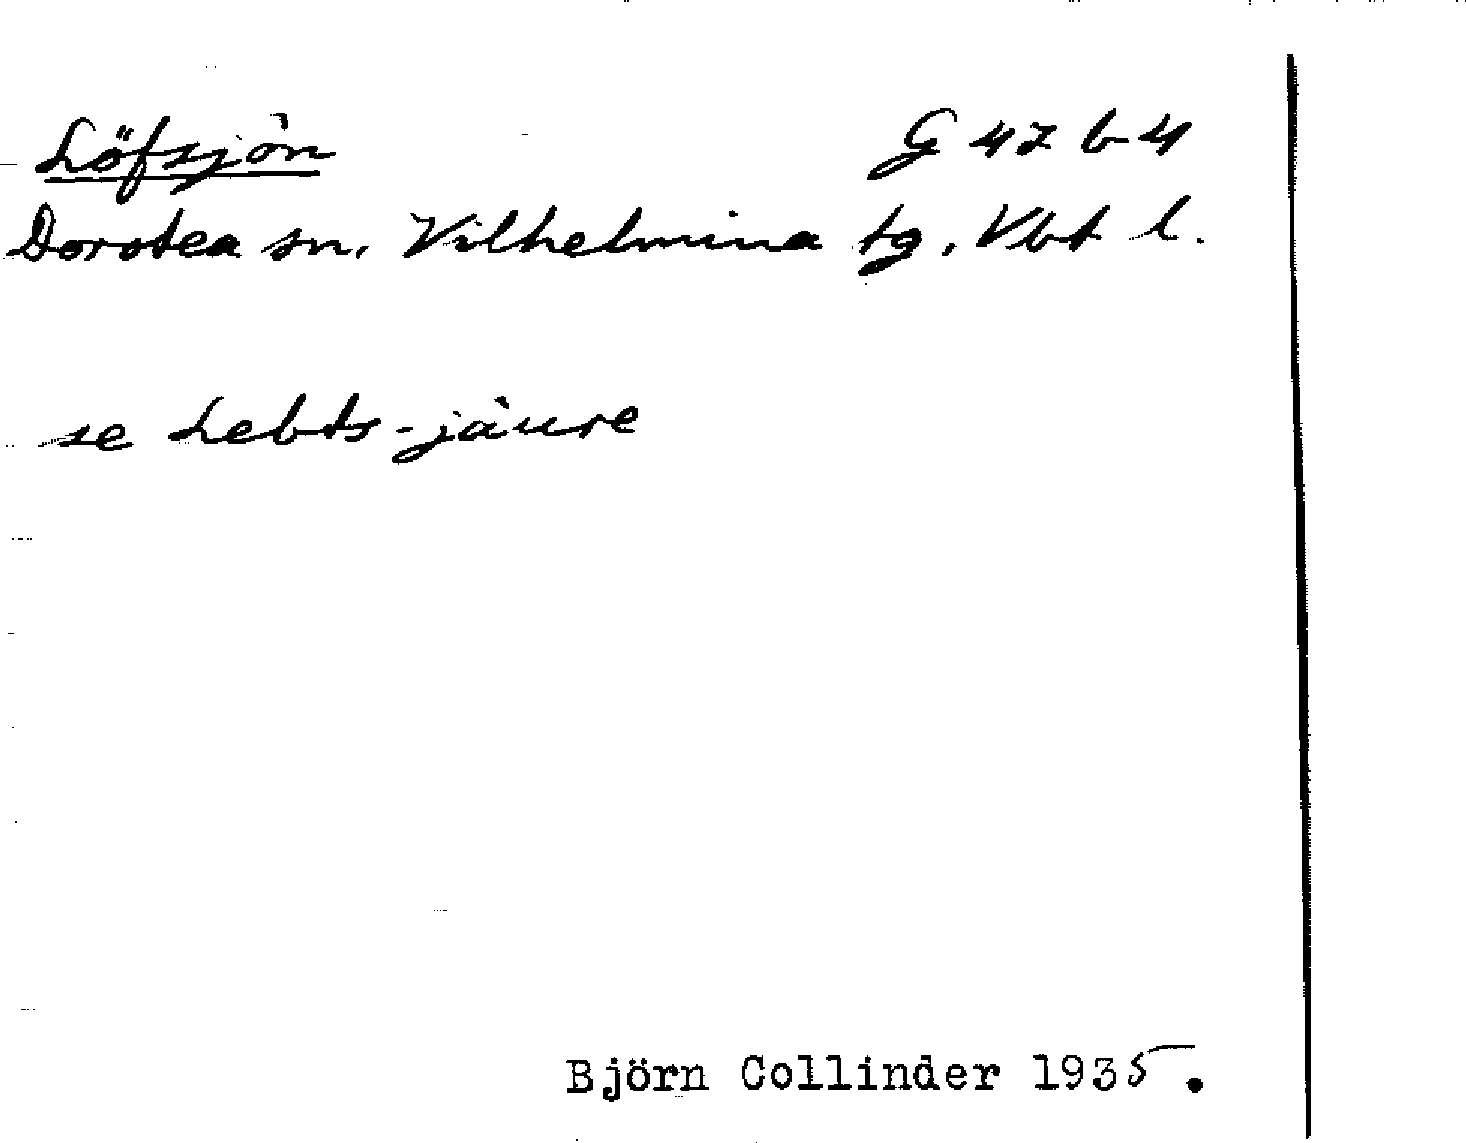 Löfsjön G 47 b 4
Dorotea sn. Vilhelmina tg. Vbt l.
se Lebts-jàure
Björn Collinder 1935.